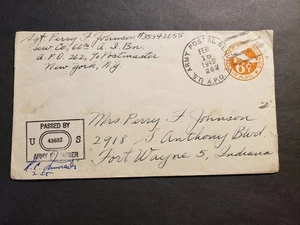 Sgt Perry F Johnson #35542055
Serv Co, 669 A. I. Bn.
A.P.O. 262, % Postmaster
New York, N.Y.
U.S. ARMY POSTAL SE
A.P.O.
15
262
6¢
PASSED BY
U 43632 S
ARMY EXAMINER
Mrs Perry F Johnson
2918 S Anthony Blvd
Fort Wayne 5, Indiana